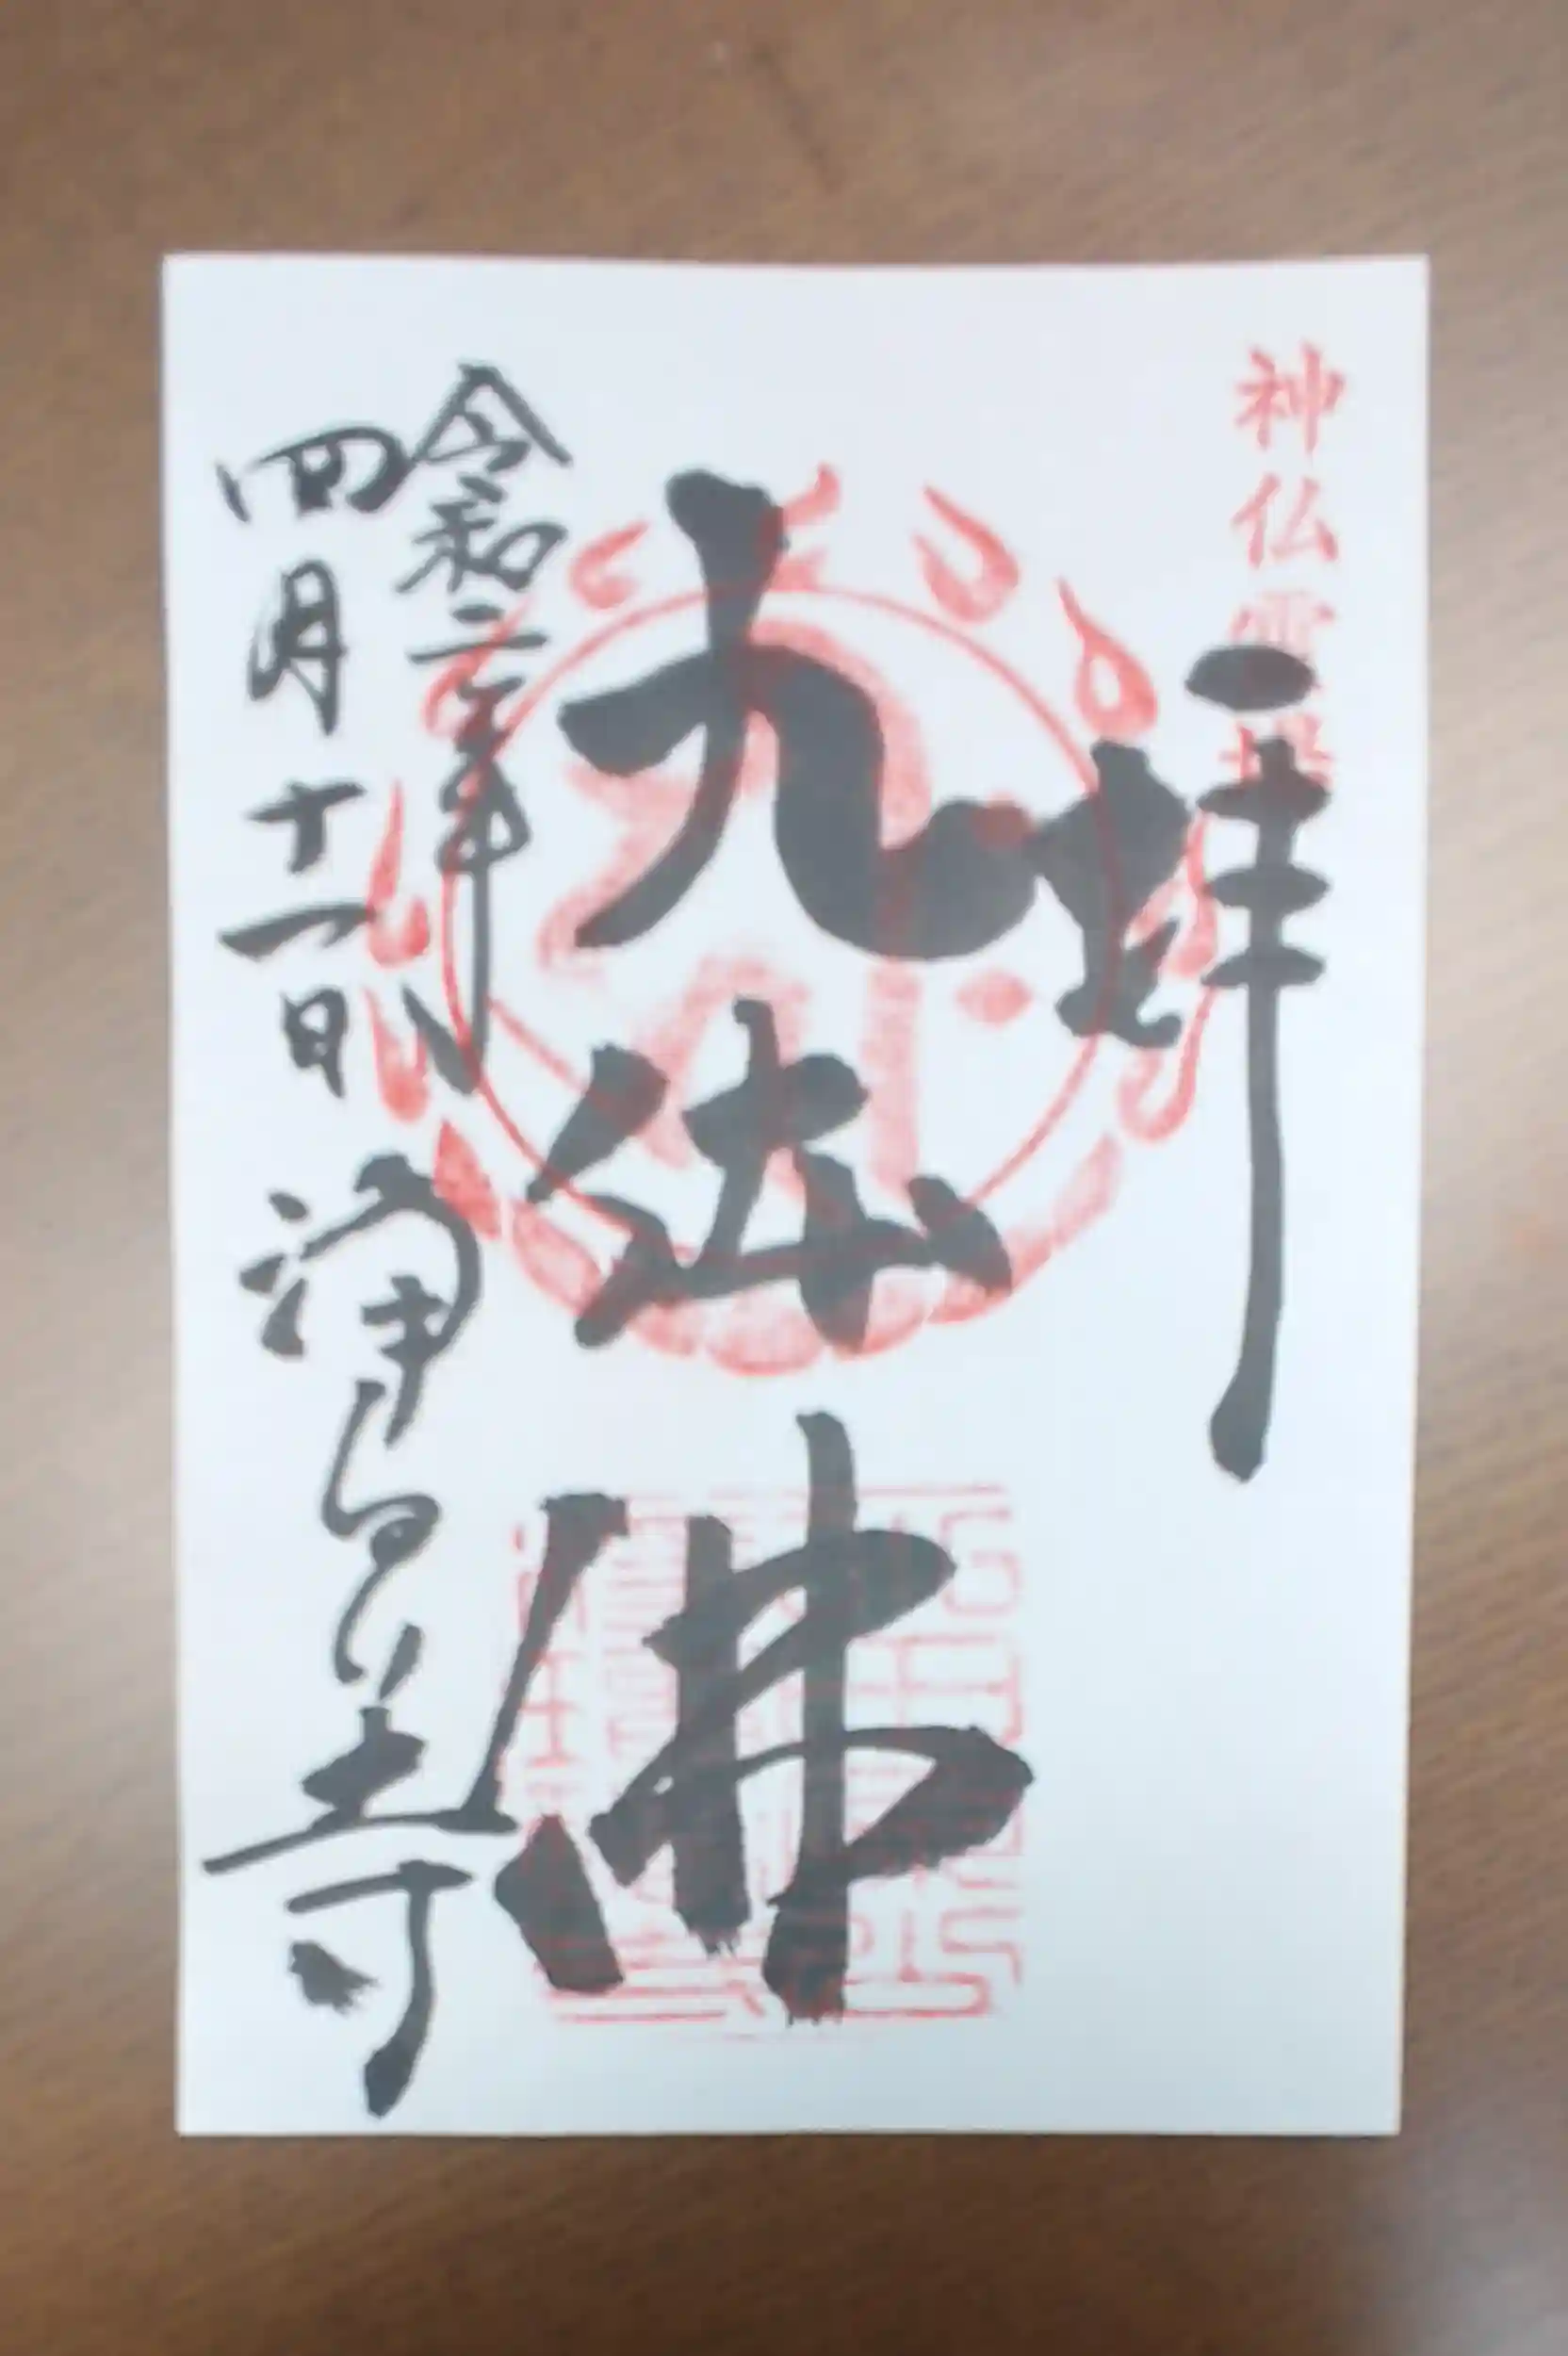 神仏霊場
拝
九体佛
令和二年
四月十一日 浄るり寺